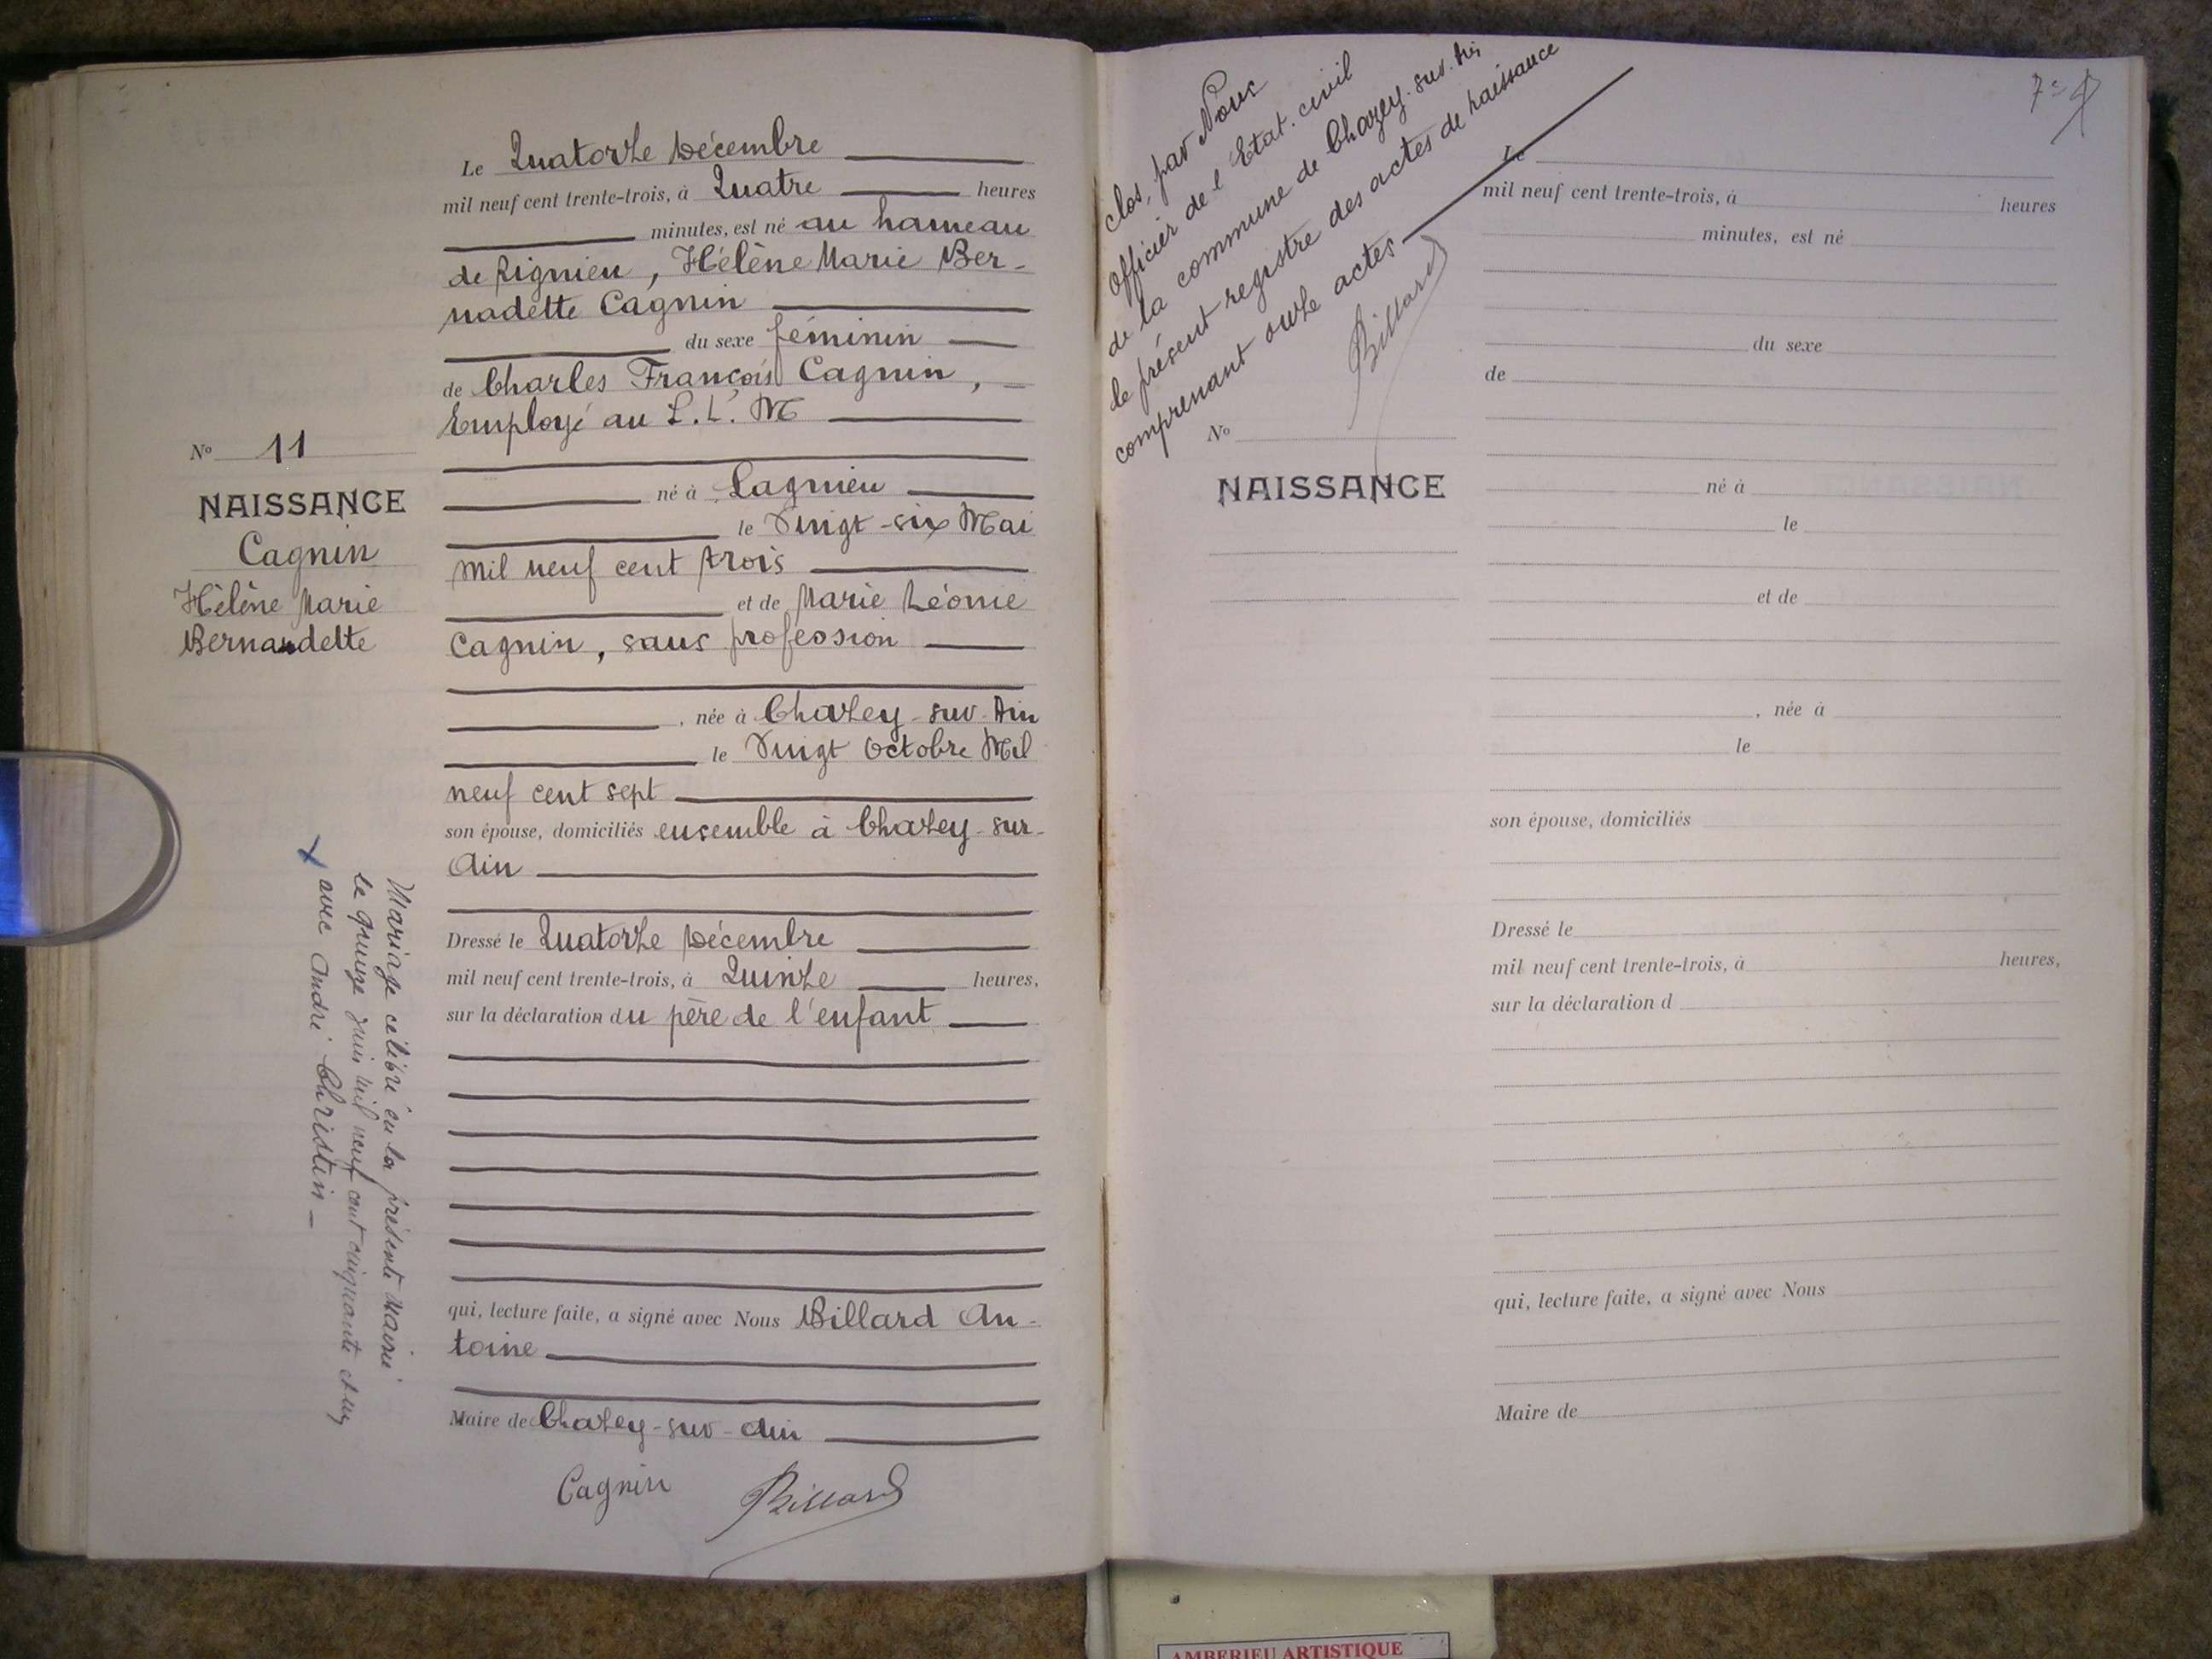 Le Quatorze Décembre
mil neuf cent trente-trois, à Quatre heures
minutes, est né au hameau
de Rignieu, Hélène Marie Ber-
nadette Cagnin
du sexe féminin
de Charles François Cagnin,
Employé au P.L.M
né à Lagnieu
le Vingt-six Mai
mil neuf cent trois
et de Marie Léonie
Cagnin, sans profession
, née à Chazey-sur-Ain
le Vingt Octobre Mil
neuf cent sept
son épouse, domiciliés ensemble à Chazey-sur-
Ain
Dressé le Quatorze Décembre
mil neuf cent trente-trois, à Quinze heures,
sur la déclaration du père de l'enfant
qui, lecture faite, a signé avec Nous Billard An-
toine
Maire de Chazey-sur-Ain
Cagnin Billard
No 11
NAISSANCE
Cagnin
Hélène Marie
Bernadette
Mariage célébré en la présente Mairie
le quinze juin mil neuf cent cinquante
avec André Christin
Clos, par Nous
Officier de l'Etat-civil
de la commune de Chazey-sur-Ain
le présent registre des actes de naissance
comprenant onze actes
Billard
Le
mil neuf cent trente-trois, à heures
minutes, est né
du sexe
de
No
NAISSANCE
né à
le
et de
, née à
le
son épouse, domiciliés
Dressé le
mil neuf cent trente-trois, à heures,
sur la déclaration d
qui, lecture faite, a signé avec Nous
Maire de
AMBERIEU ARTISTIQUE